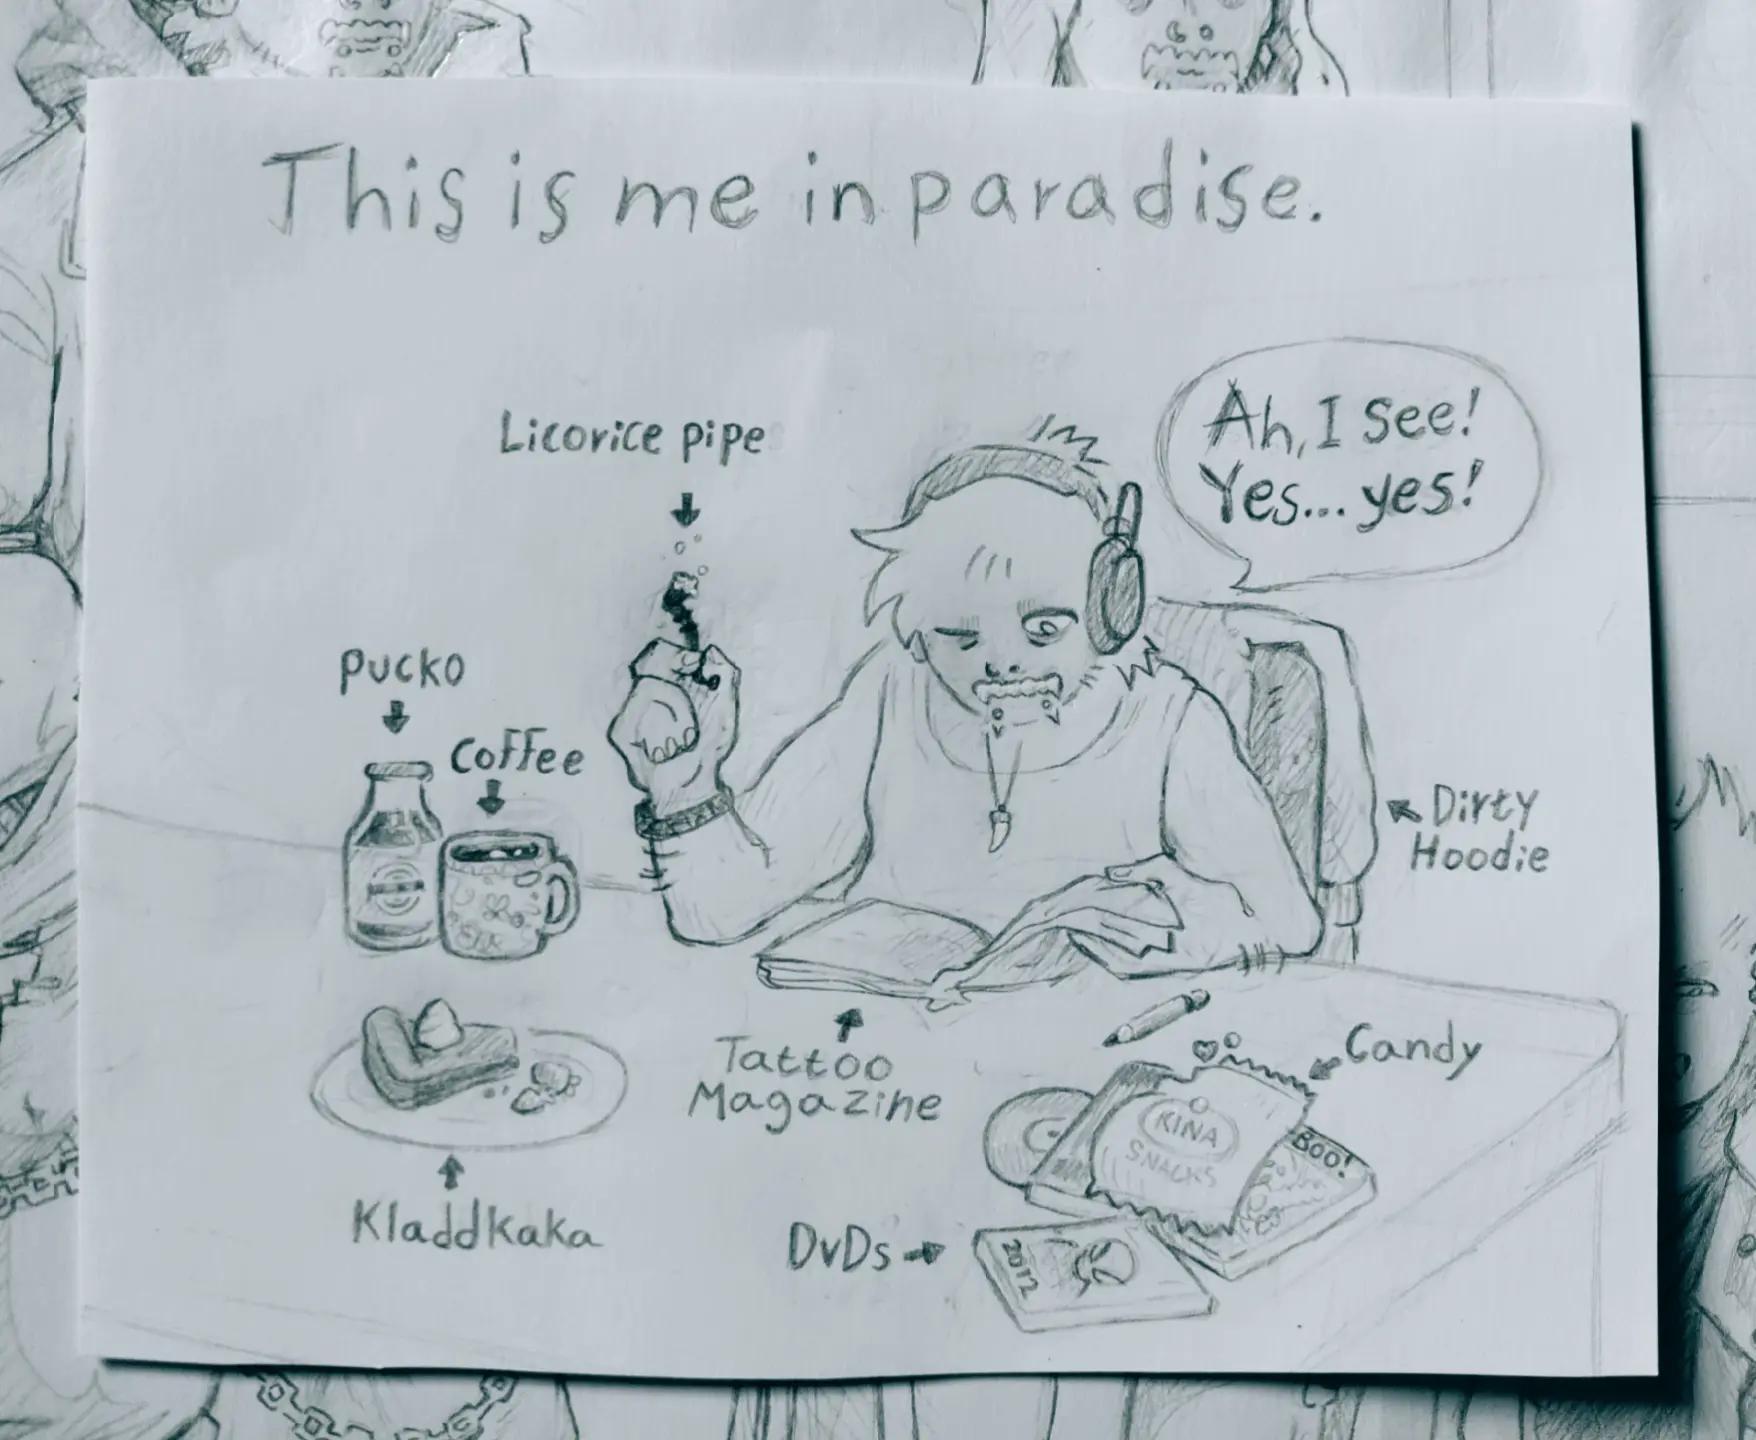 This is me in paradise.
Ah, I see!
Yes... yes!
Licorice pipe
Pucko
Coffee
Dirty
Hoodie
Tattoo
Magazine
Candy
KINA
SNACKS
BOO!
Kladdkaka
DvDs
2012